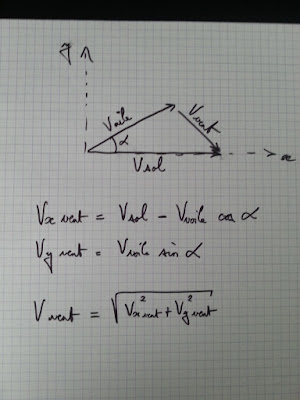 y
Vvoile
Vvent
α
x
Vsol
Vx vent = Vsol - Vvoile cos α
Vy vent = Vvoile sin α
Vvent = √(Vx²vent + Vy²vent)